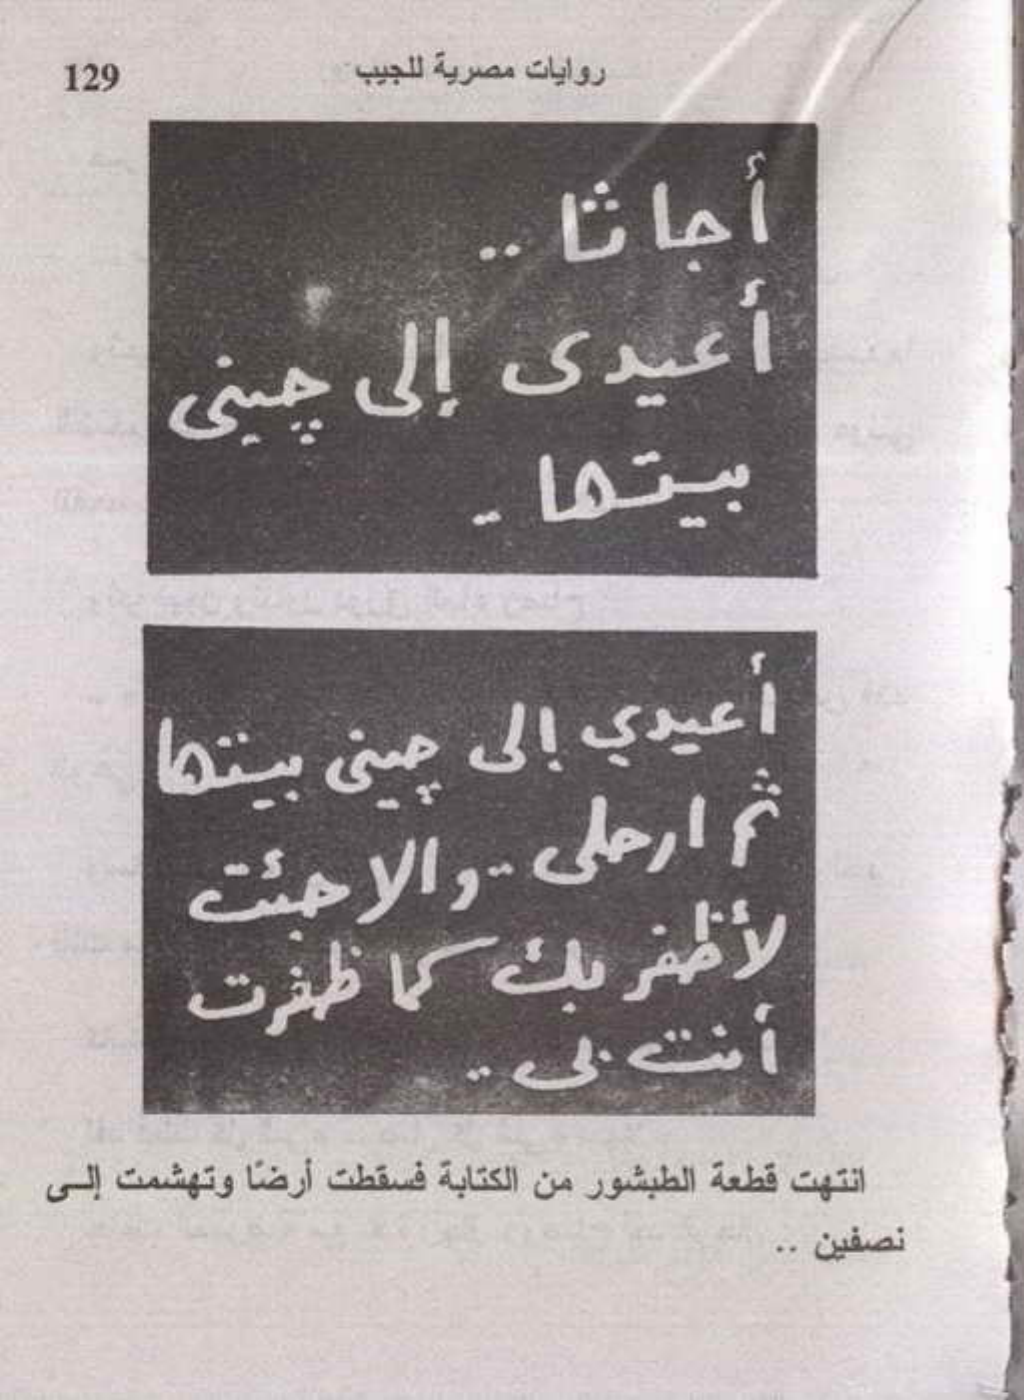 روايات مصرية للجيب
129
أجاثا ..
أعيدى إلى چينى
بيتها ..
أعيدي إلى چينى بيتها
ثم ارحلى .. والا جئت
لأظفر بك كما ظفرت
أنت بى ..
انتهت قطعة الطبشور من الكتابة فسقطت أرضًا وتهشمت إلـى
نصفين ..